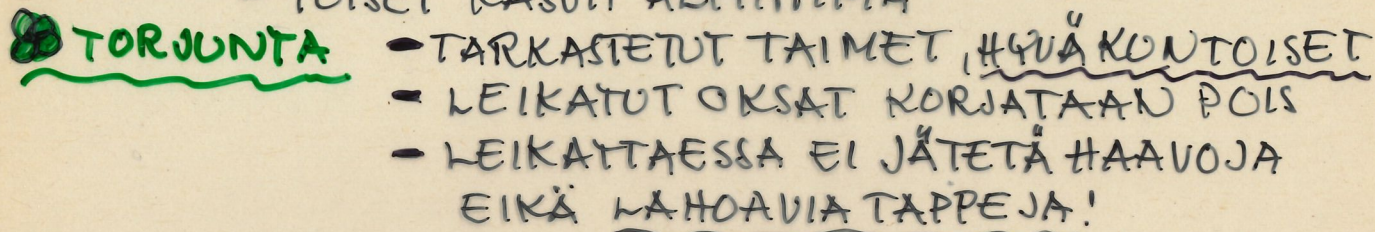 TORJUNTA - TARKASTETUT TAIMET, HYVÄKUNTOISET
- LEIKATUT OKSAT KORJATAAN POIS
- LEIKATTAESSA EI JÄTETÄ HAAVOJA
EIKÄ LAHOAVIA TAPPEJA!